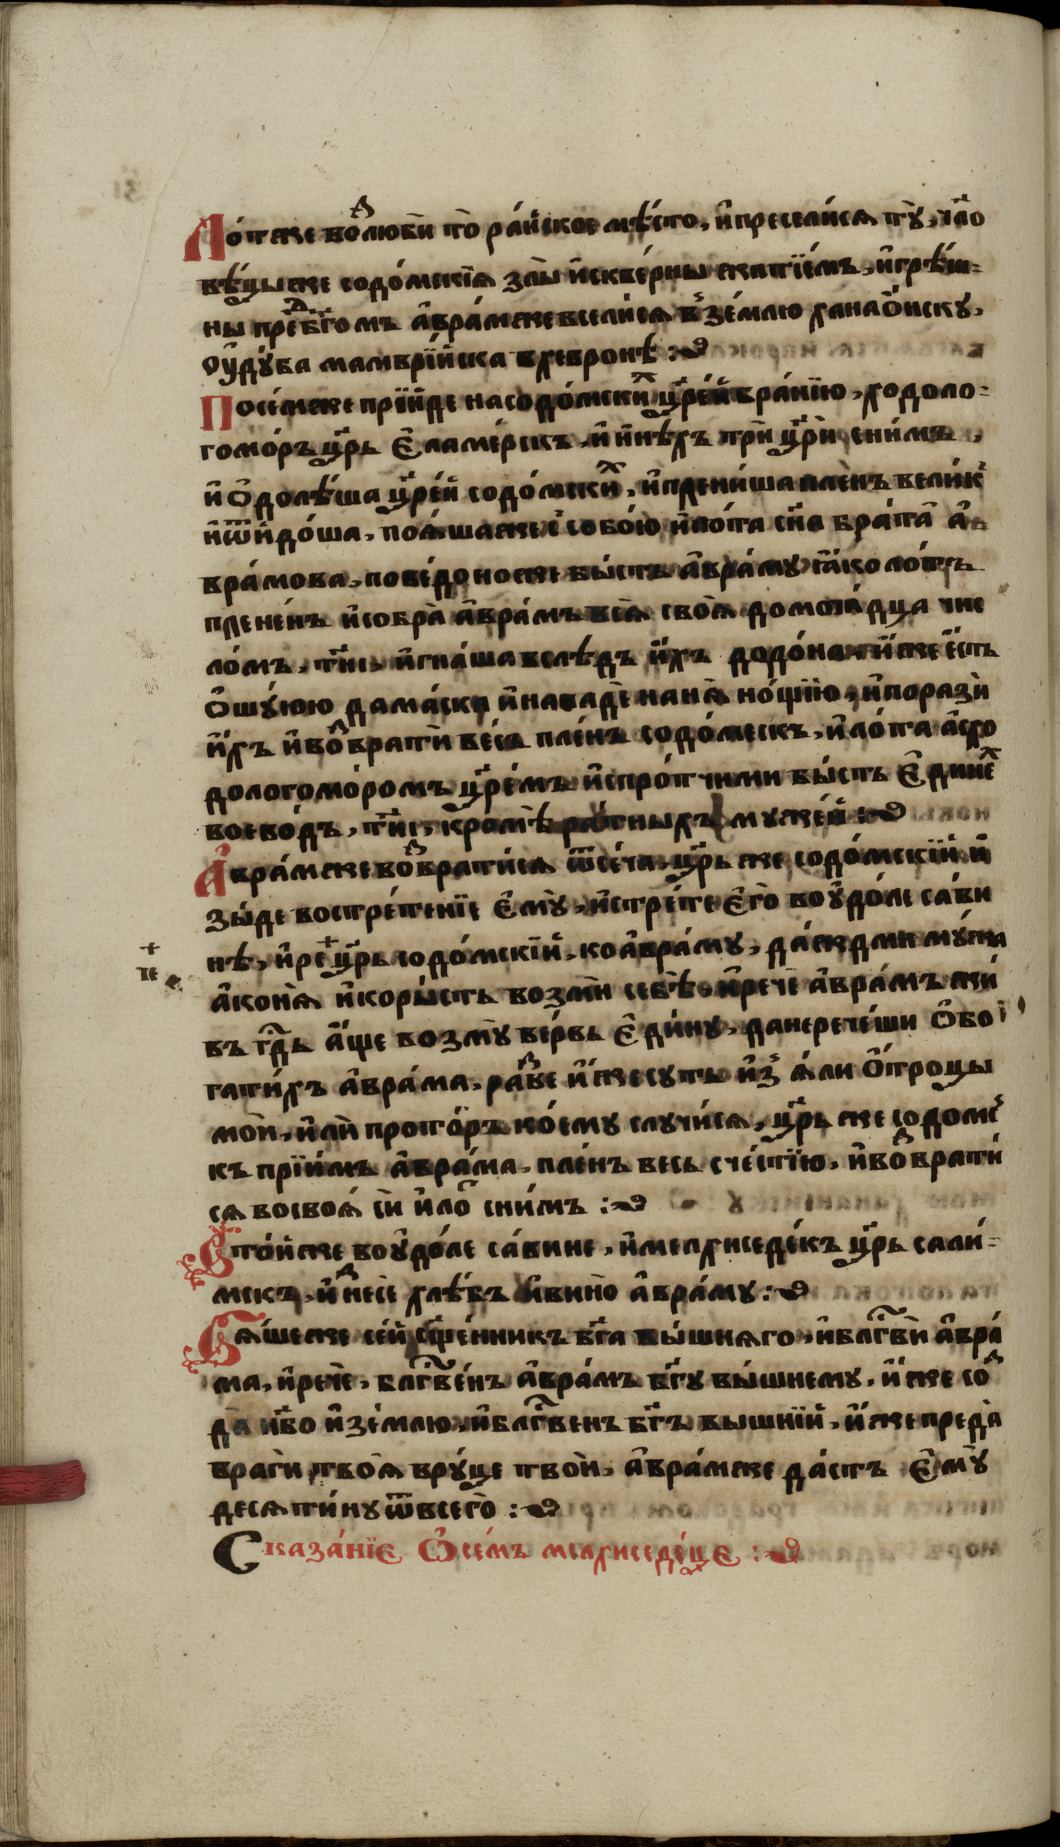 Ло́тже во̾злюби̏ то̀ ра́йское мѣ́сто, и҆ пресели́ся тꙋ̀, чл҃о
вѣ́цы же содо́мскїѧ злы̀ и҆скве́рны житїе́мъ, и҆грѣ́ш=
ны пред̾ бг҃омъ а҆вра́мже всели́сѧ в̾зе́млю ханао́нскꙋ,
оу҆дꙋ́ба мамврі́йска вхевро́нѣ :
Посе́мже прїи́де на содо́мских̾ цр҃е́й бра́нїю, ходоло=
гомо́ръ цр҃ь є҆ламе́рскъ, и҆ и҆нѣ́хъ три̏ цр҃и̏ сни́мъ,
и҆ ѡ҆долѣ́ша цр҃е́й содо́мских̾, и҆плени́ша пле́нъ вели́к̾
и҆ ѿидо́ша, поѧ́шаже с̾собо́ю и҆ло́та сн҃а бра́та а҆
вра́мова, пове́доноже бы́сть а҆вра́мꙋ ꙗ҆́ко ло́тъ
плене́нъ и҆собра̀ а҆вра́мъ всѧ̀ своѧ̀ домоча́дца чис
ло́мъ, т҃иі, и҆гна́ша вслѣ́дъ и҆́хъ додо́на и҆́же є҆́сть
ѡ҆шꙋ́юю дама́ска и҆нападе̏ нанѧ̀ но́щїю, и҆порази̏
и҆́хъ и҆воз̾врати̏ ве́сь пле́нъ содо́мскъ, и҆ло́та а҆схо
дологомо́ромъ цр҃е́мъ и҆спро́тчими бы́сть є҆ди́нех̾
воево́дъ, т҃иі, кромѣ̀ ра́тныхъ мꙋже́й :
А҆вра́мже воз̾врати́сѧ ѿсе́ча, цр҃ь же содо́мскїй и҆
зы́де востре́тенїе є҆мꙋ̀, и҆стре́те є҆го̀ воу҆до́ле са́ви
нѣ, и҆рече̏ цр҃ь содо́мскїй, коа҆вра́мꙋ, да́ждми мꙋ́жа
а҆конѧ̀ и҆коры́сть возми̏ себѣ̀, и҆рече̏ а҆вра́мъ жи
въ гд҃ь а҆́ще возмꙋ̀ ве́рвь є҆ди́нꙋ, данерече́ши ѡ҆бо
гати́хъ а҆вра́ма, раз̾ве и҆́же сꙋть и҆з̾ ꙗ҆ли ѡ҆́троцы
мои̏, и҆ли̏ протор̾ъ ко́емꙋ слꙋчи́сѧ, цр҃ь же содомс̾
къ прїи́мъ а҆вра́ма, пле́нъ весь с че́стїю, и҆воз̾врати́
сѧ восвоѧ́ си̏ и҆лот̾ сни́мъ :
Є҆то́йже воу҆до́ле са́вине, и҆мелхиседе́къ цр҃ь сали́=
мскъ, и҆з̾несе̏ хлѣ́бъ и҆вино̀ а҆вра́мꙋ :
Бѧ́шеже се́й сщ҃е́нникъ бг҃а вы́шнѧго, и҆блг҃ви̏ а҆вра́
ма, и҆рече̏, блг҃ве́нъ а҆вра́мъ бг҃ꙋ вы́шнемꙋ, и҆́же соз̾
да̀ нб҃о и҆зе́млю, и҆блг҃венъ бг҃ъ вышнїй, и҆́же преда̀
враги̏ твоѧ̀ врꙋ́це твои̏, а҆вра́мже да́стъ є҆мꙋ̀
десѧти́нꙋ ѿвсего̀ :
Сказа́нїе ѡ҆се́мъ мелхиседе́це :